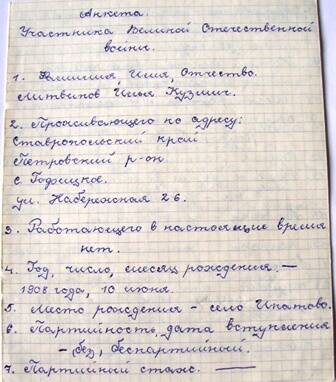 Анкета.
Участника Великой Отечественной
войны.
1. Фамилия, Имя, Отчество.
Литвинов Илья Кузмич.
2. Проживающего по адресу:
Ставропольский край
Петровский р-он
с Гофицкое.
ул. Набережная 26.
3. Работающего в настоящие время
нет.
4. Год, число, месяц рождения. —
1908 года, 10 июня.
5. Место рождения - село Ипатово.
6. Партийность, дата вступления
- (без), беспартийный.
7. Партийный стаж. ——